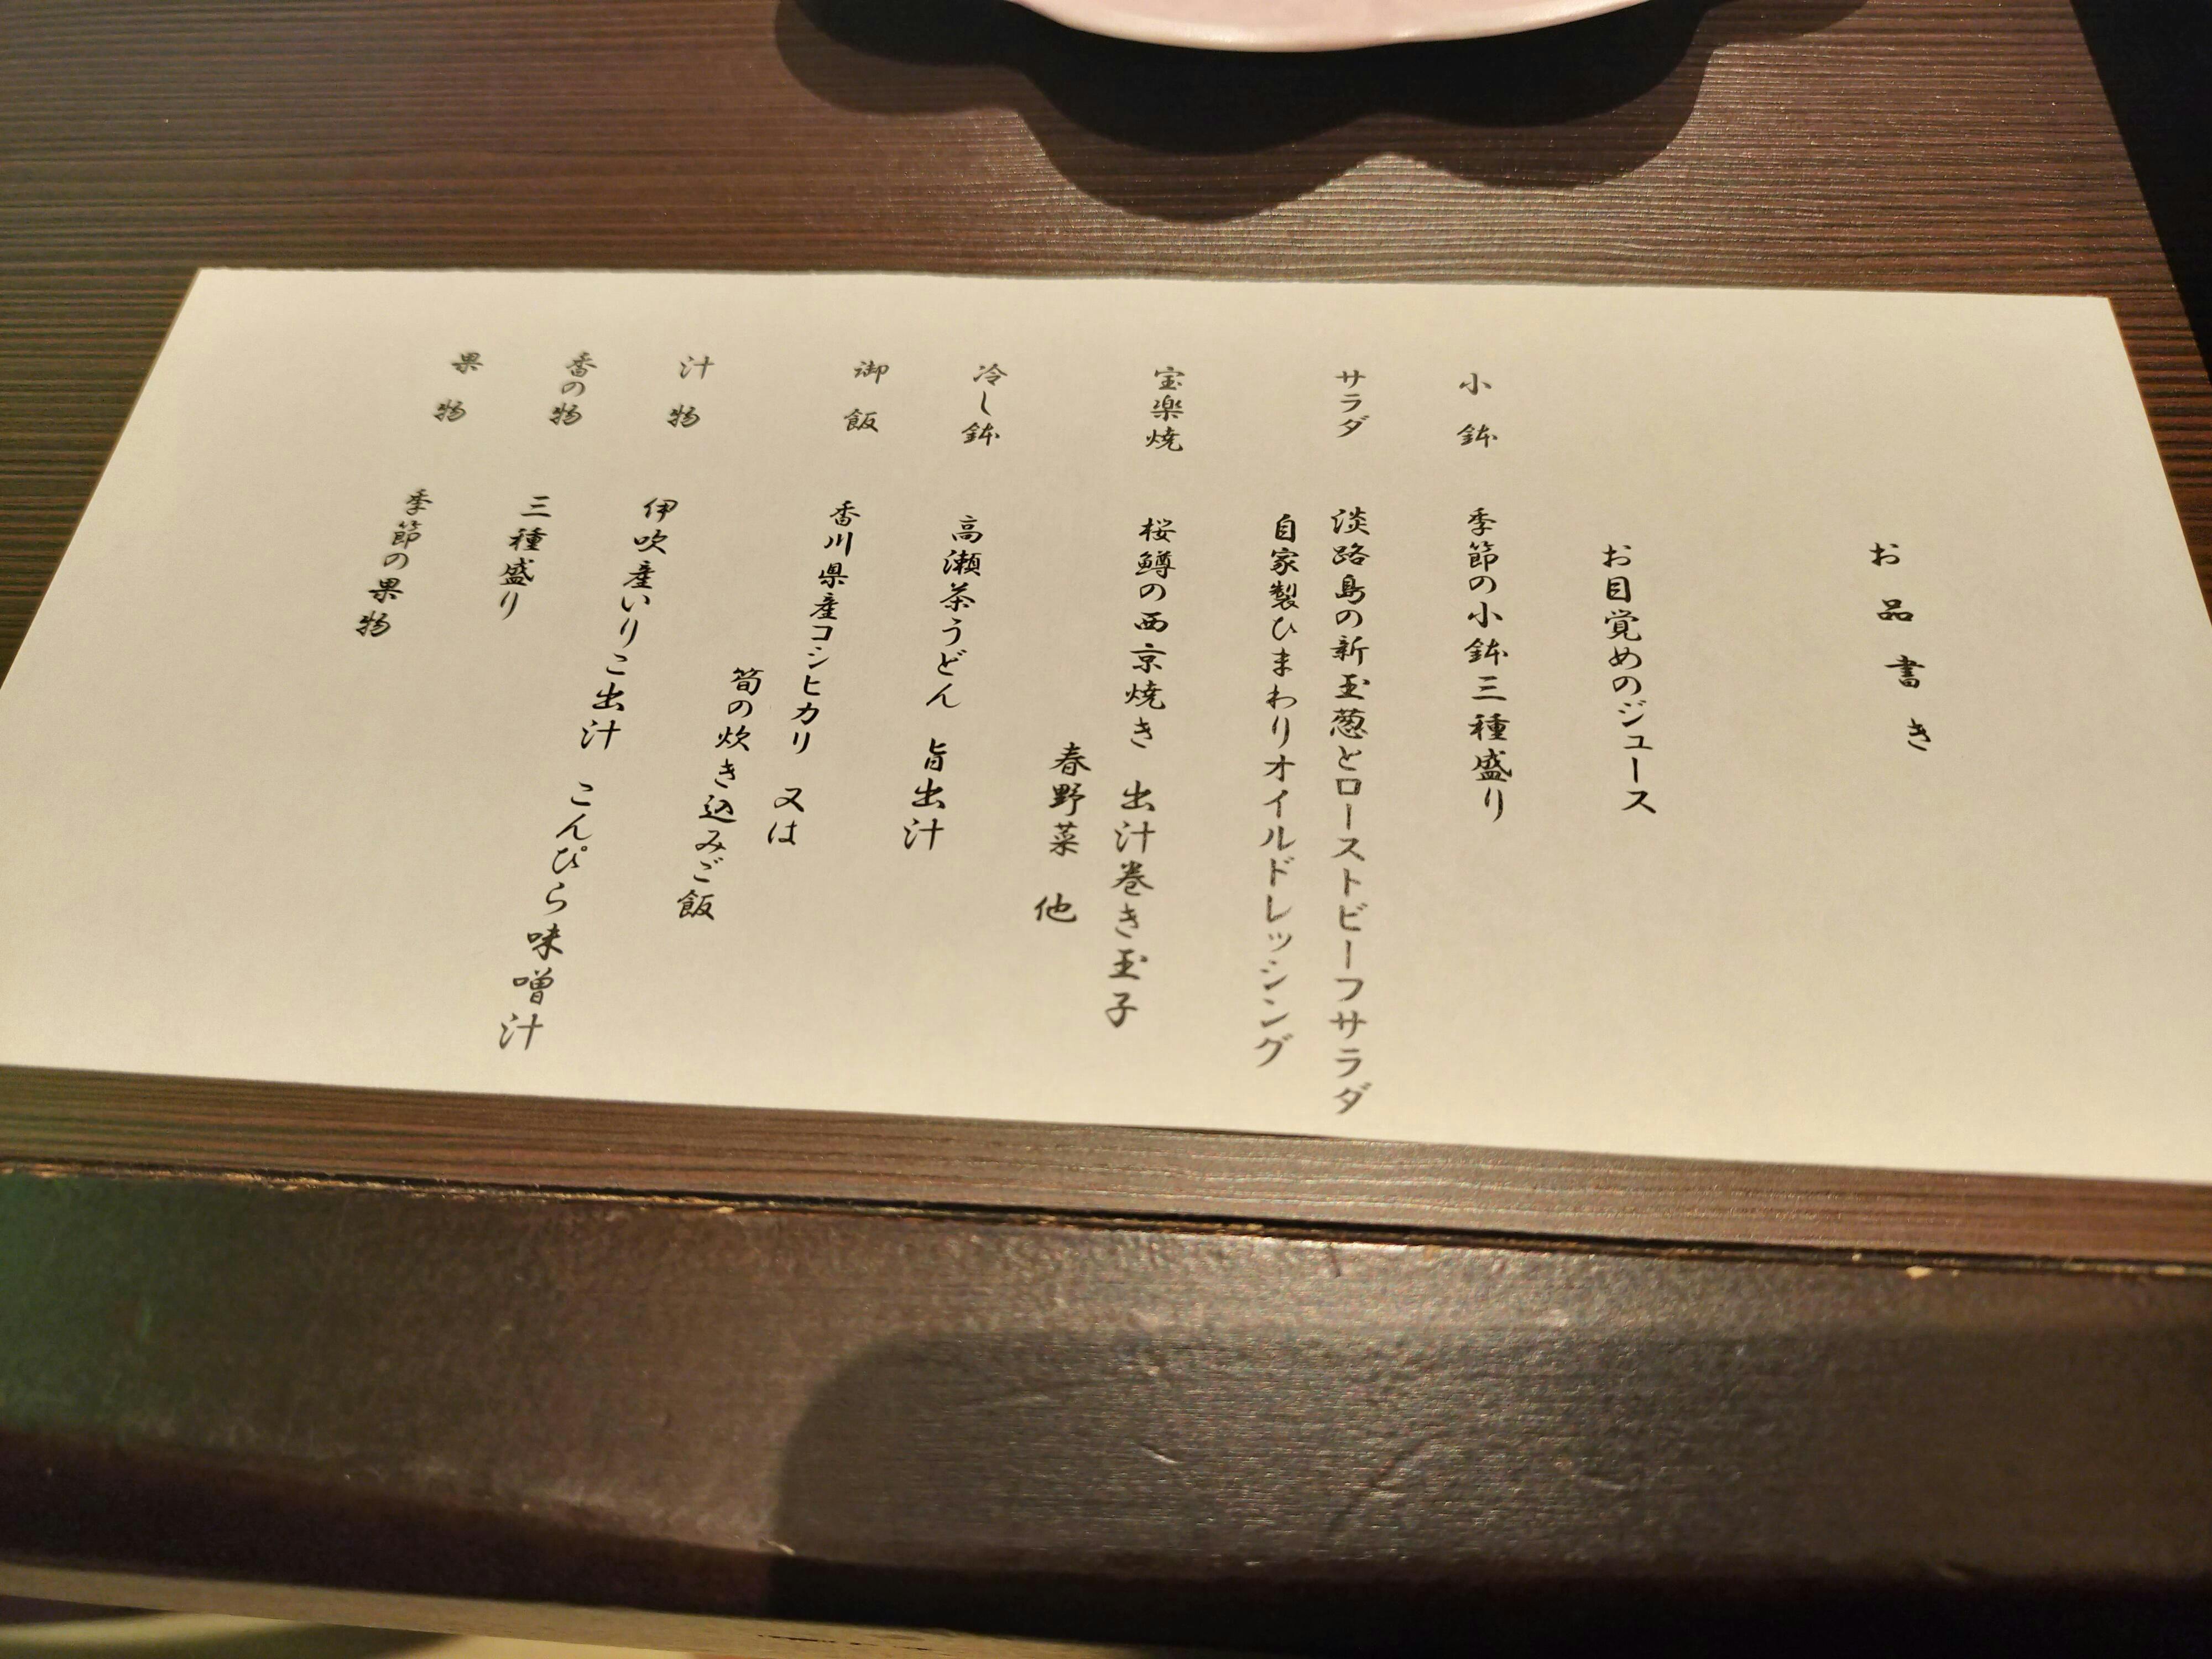 お品書き
お目覚めのジュース
小鉢 季節の小鉢三種盛り
サラダ 淡路島の新玉葱とローストビーフサラダ
自家製ひまわりオイルドレッシング
宝楽焼 桜鱒の西京焼き 出汁巻き玉子
春野菜 他
冷し鉢 高瀬茶うどん 旨出汁
御飯 香川県産コシヒカリ 又は
筍の炊き込みご飯
汁物 伊吹産いりこ出汁 こんぴら味噌汁
香の物 三種盛り
果物 季節の果物